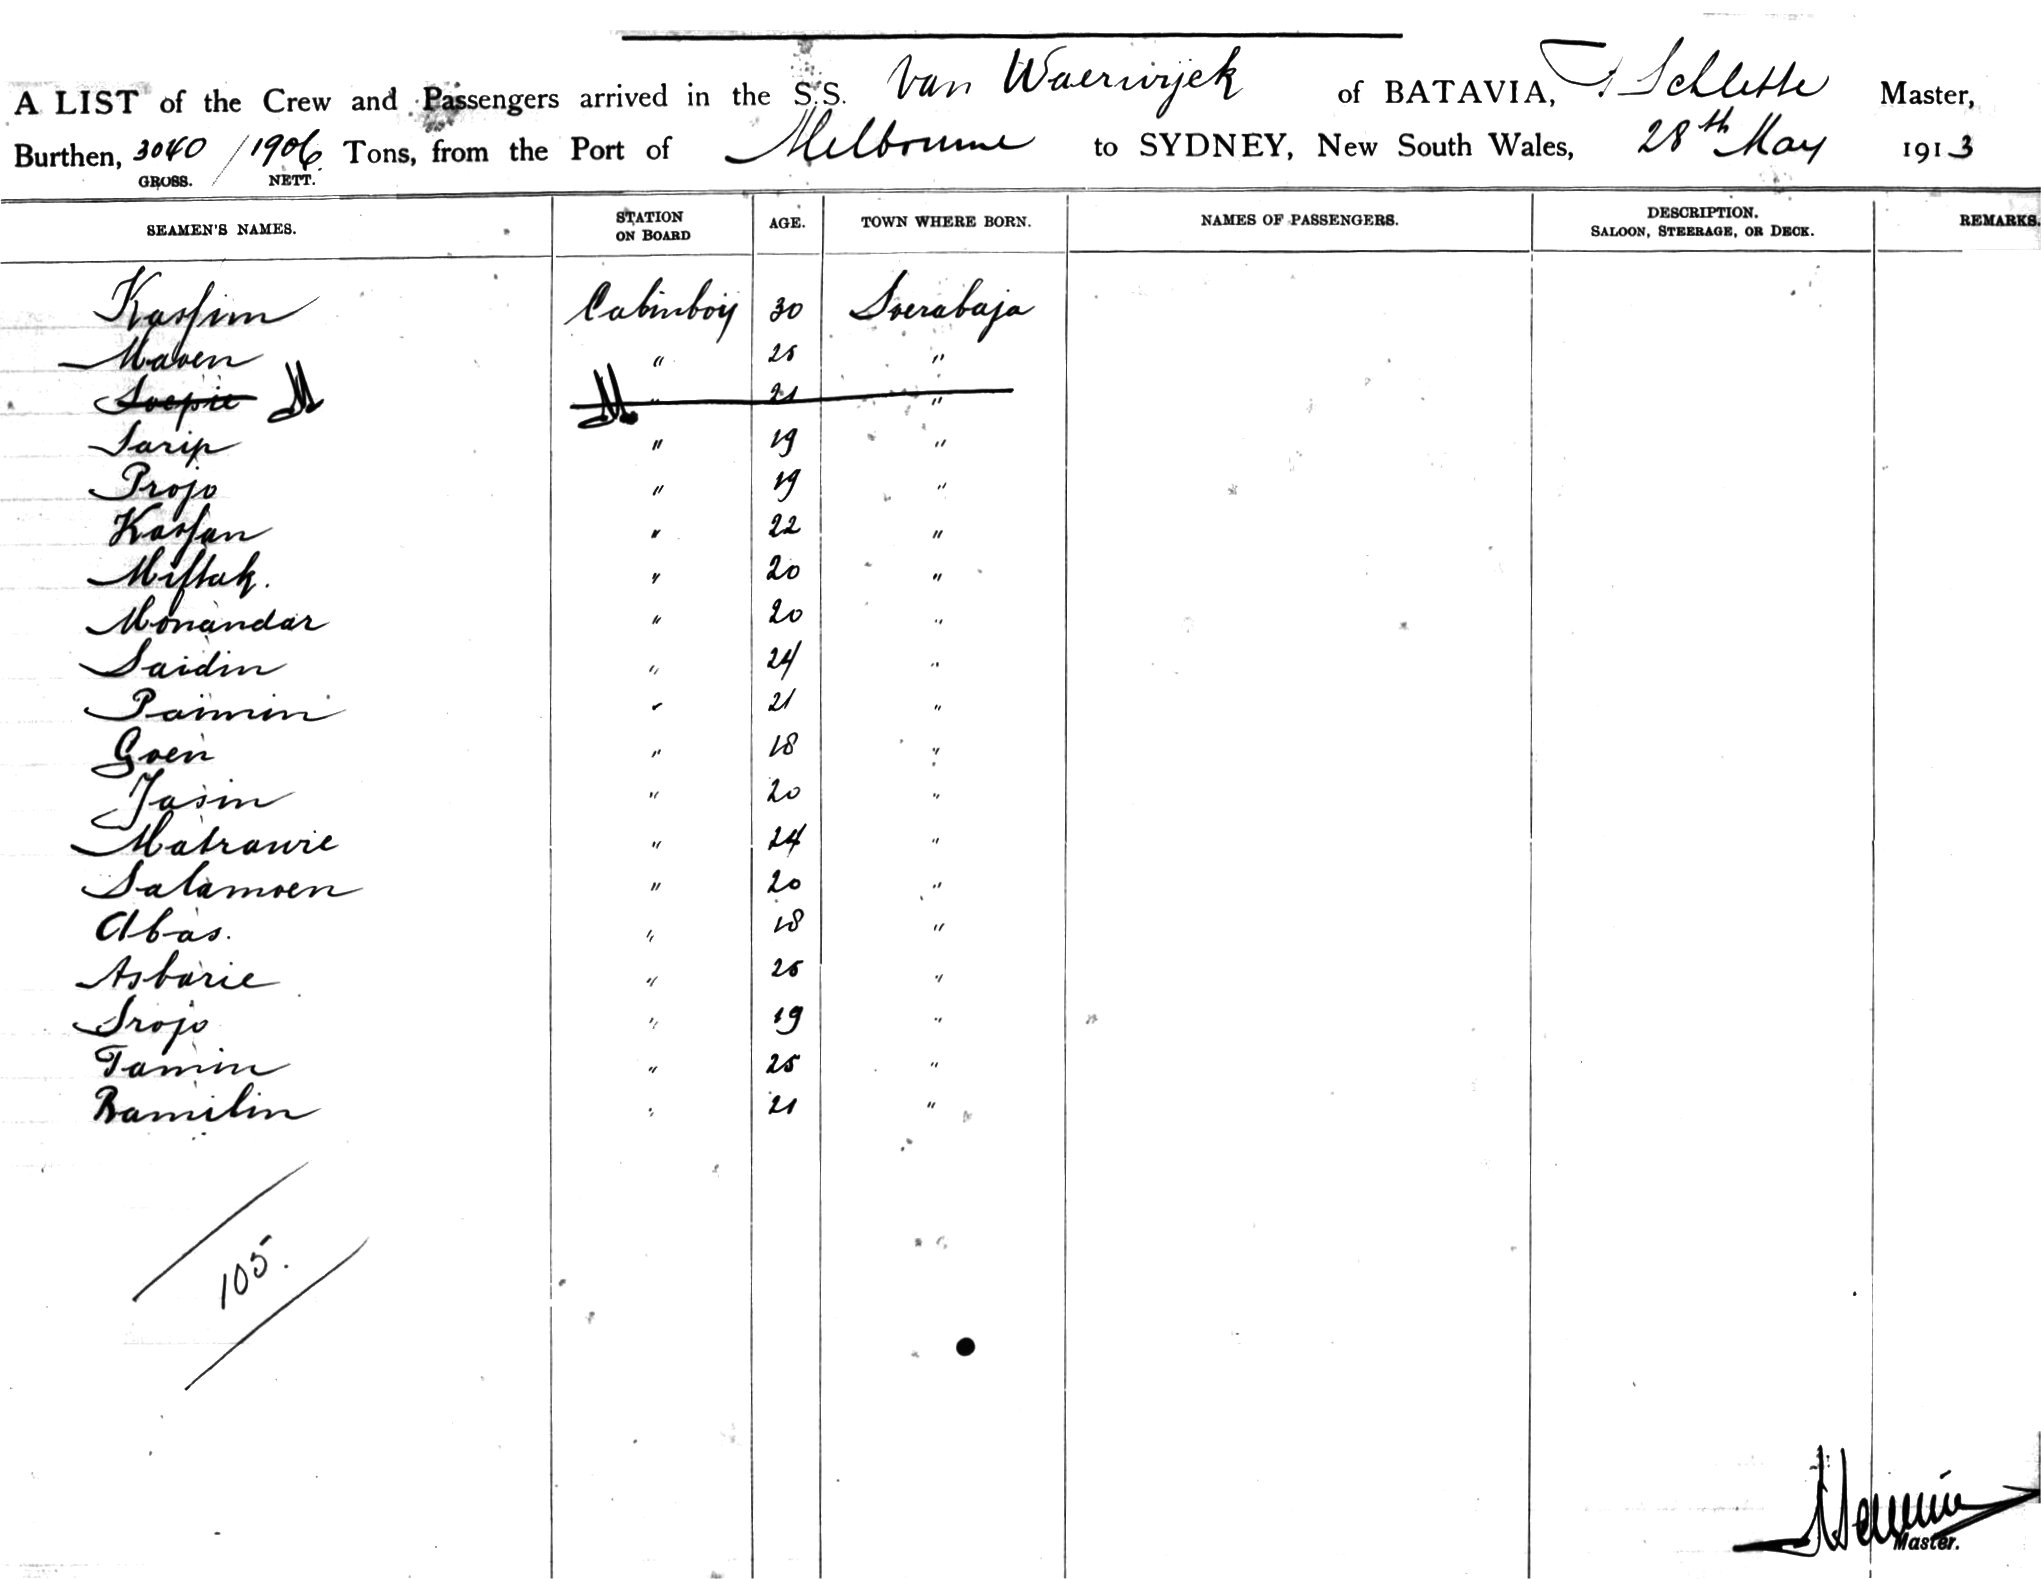 A LIST of the Crew and Passengers arrived in the S.S. Van Waerwijck of BATAVIA, Master,
Burthen, 3040 / 1906 Tons, from the Port of Melbourne to SYDNEY, New South Wales, 28th May 1913
GROSS. NETT.
SEAMEN'S NAMES. STATION ON BOARD AGE. TOWN WHERE BORN. NAMES OF PASSENGERS. DESCRIPTION. SALOON, STEERAGE, OR DECK. REMARKS.
Kassim Cabinboy 30 Soerabaja
Maoen " 25 "
Soepie " 21 "
Sarip " 19 "
Projo " 19 "
Kassan " 22 "
Miftak. " 20 "
Monandar " 20 "
Saidin " 24 "
Paimin " 21 "
Goen " 18 "
Jasin " 20 "
Matrawie " 24 "
Salamoen " 20 "
Abas. " 18 "
Asbarie " 25 "
Srojo " 19 "
Tamin " 25 "
Ramilin " 21 "
105.
Master.